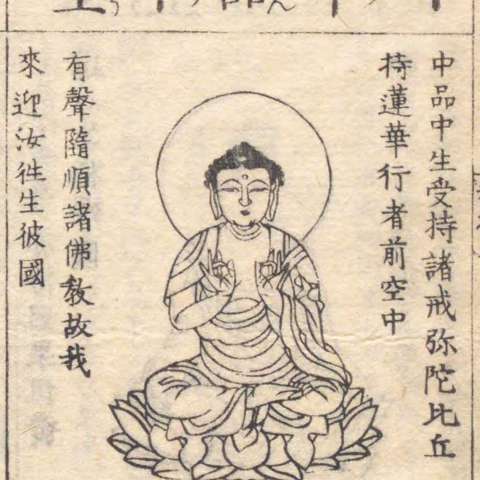 中品中生受持諸戒弥陀比丘
持蓮華行者前空中
有聲隨順諸佛教故我
來迎汝徃生彼國